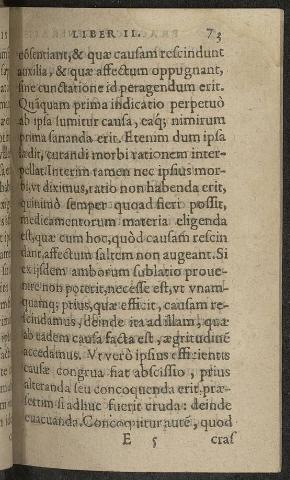 LIBER II. 73
cōsentiant, & quæ causam rescindunt
auxilia, & quæ affectum oppugnant,
sine cunctatione id peragendum erit.
Quāquam prima indicatio perpetuò
ab ipsa sumitur causa, eaq; nimirum
prima sananda erit. Etenim dum ipsa
lædit, curandi morbi rationem inter-
pellat. Interim tamen nec ipsius mor-
bi, vt diximus, ratio non habenda erit,
quinimò semper quoad fieri possit,
medicamentorum materia eligenda
est, quæ cum hoc, quòd causam rescin
dant, affectum saltem non augeant. Si
ex ijsdem amborum sublatio proue-
nire non poterit, necesse est, vt vnam-
quamq; prius, quæ efficit, causam re-
scindamus, deinde ita ad illam, quæ
ab eadem causa facta est, ægritudinē
accedamus. Vt verò ipsius efficientis
causæ congrua fiat abscissio, prius
alteranda seu concoquenda erit, præ-
sertim si adhuc fuerit cruda: deinde
euacuanda. Concoquitur autē, quod
E 5 cras